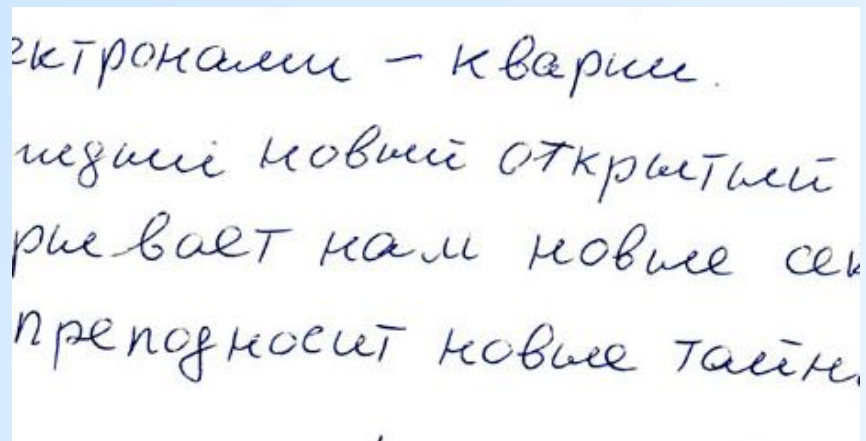 ектронами – кварки.
новый открытый
рывает нам новые сек
преподносит новые тайн